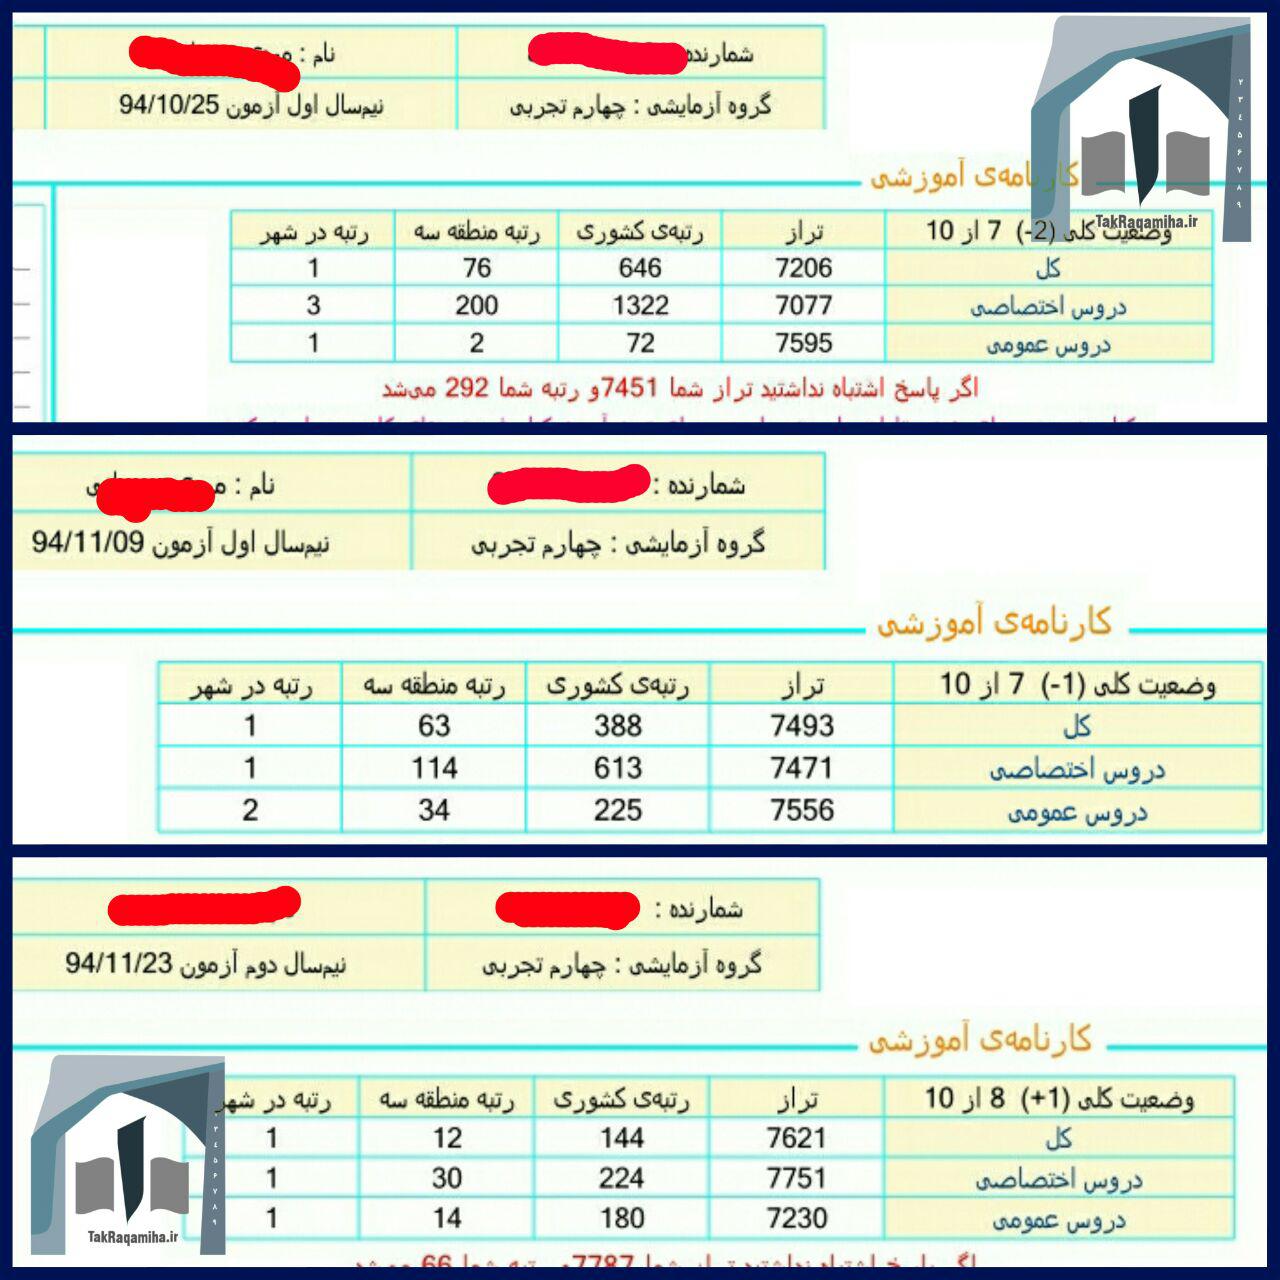 شمارنده نام :
گروه آزمایشی : چهارم تجربی نیم‌سال اول آزمون 94/10/25
کارنامه‌ی آموزشی
TakRaqamiha.ir
وضعیت کلی (2-) 7 از 10 تراز رتبه‌ی کشوری رتبه منطقه سه رتبه در شهر
کل 7206 646 76 1
دروس اختصاصی 7077 1322 200 3
دروس عمومی 7595 72 2 1
اگر پاسخ اشتباه نداشتید تراز شما 7451و رتبه شما 292 می‌شد
شمارنده : نام :
گروه آزمایشی : چهارم تجربی نیم‌سال اول آزمون 94/11/09
کارنامه‌ی آموزشی
وضعیت کلی (1-) 7 از 10 تراز رتبه‌ی کشوری رتبه منطقه سه رتبه در شهر
کل 7493 388 63 1
دروس اختصاصی 7471 613 114 1
دروس عمومی 7556 225 34 2
شمارنده :
گروه آزمایشی : چهارم تجربی نیم‌سال دوم آزمون 94/11/23
کارنامه‌ی آموزشی
وضعیت کلی (1+) 8 از 10 تراز رتبه‌ی کشوری رتبه منطقه سه رتبه در شهر
کل 7621 144 12 1
دروس اختصاصی 7751 224 30 1
دروس عمومی 7230 180 14 1
TakRaqamiha.ir
اگر پاسخ اشتباه نداشتید تراز شما 7787و رتبه شما 66 می‌شد